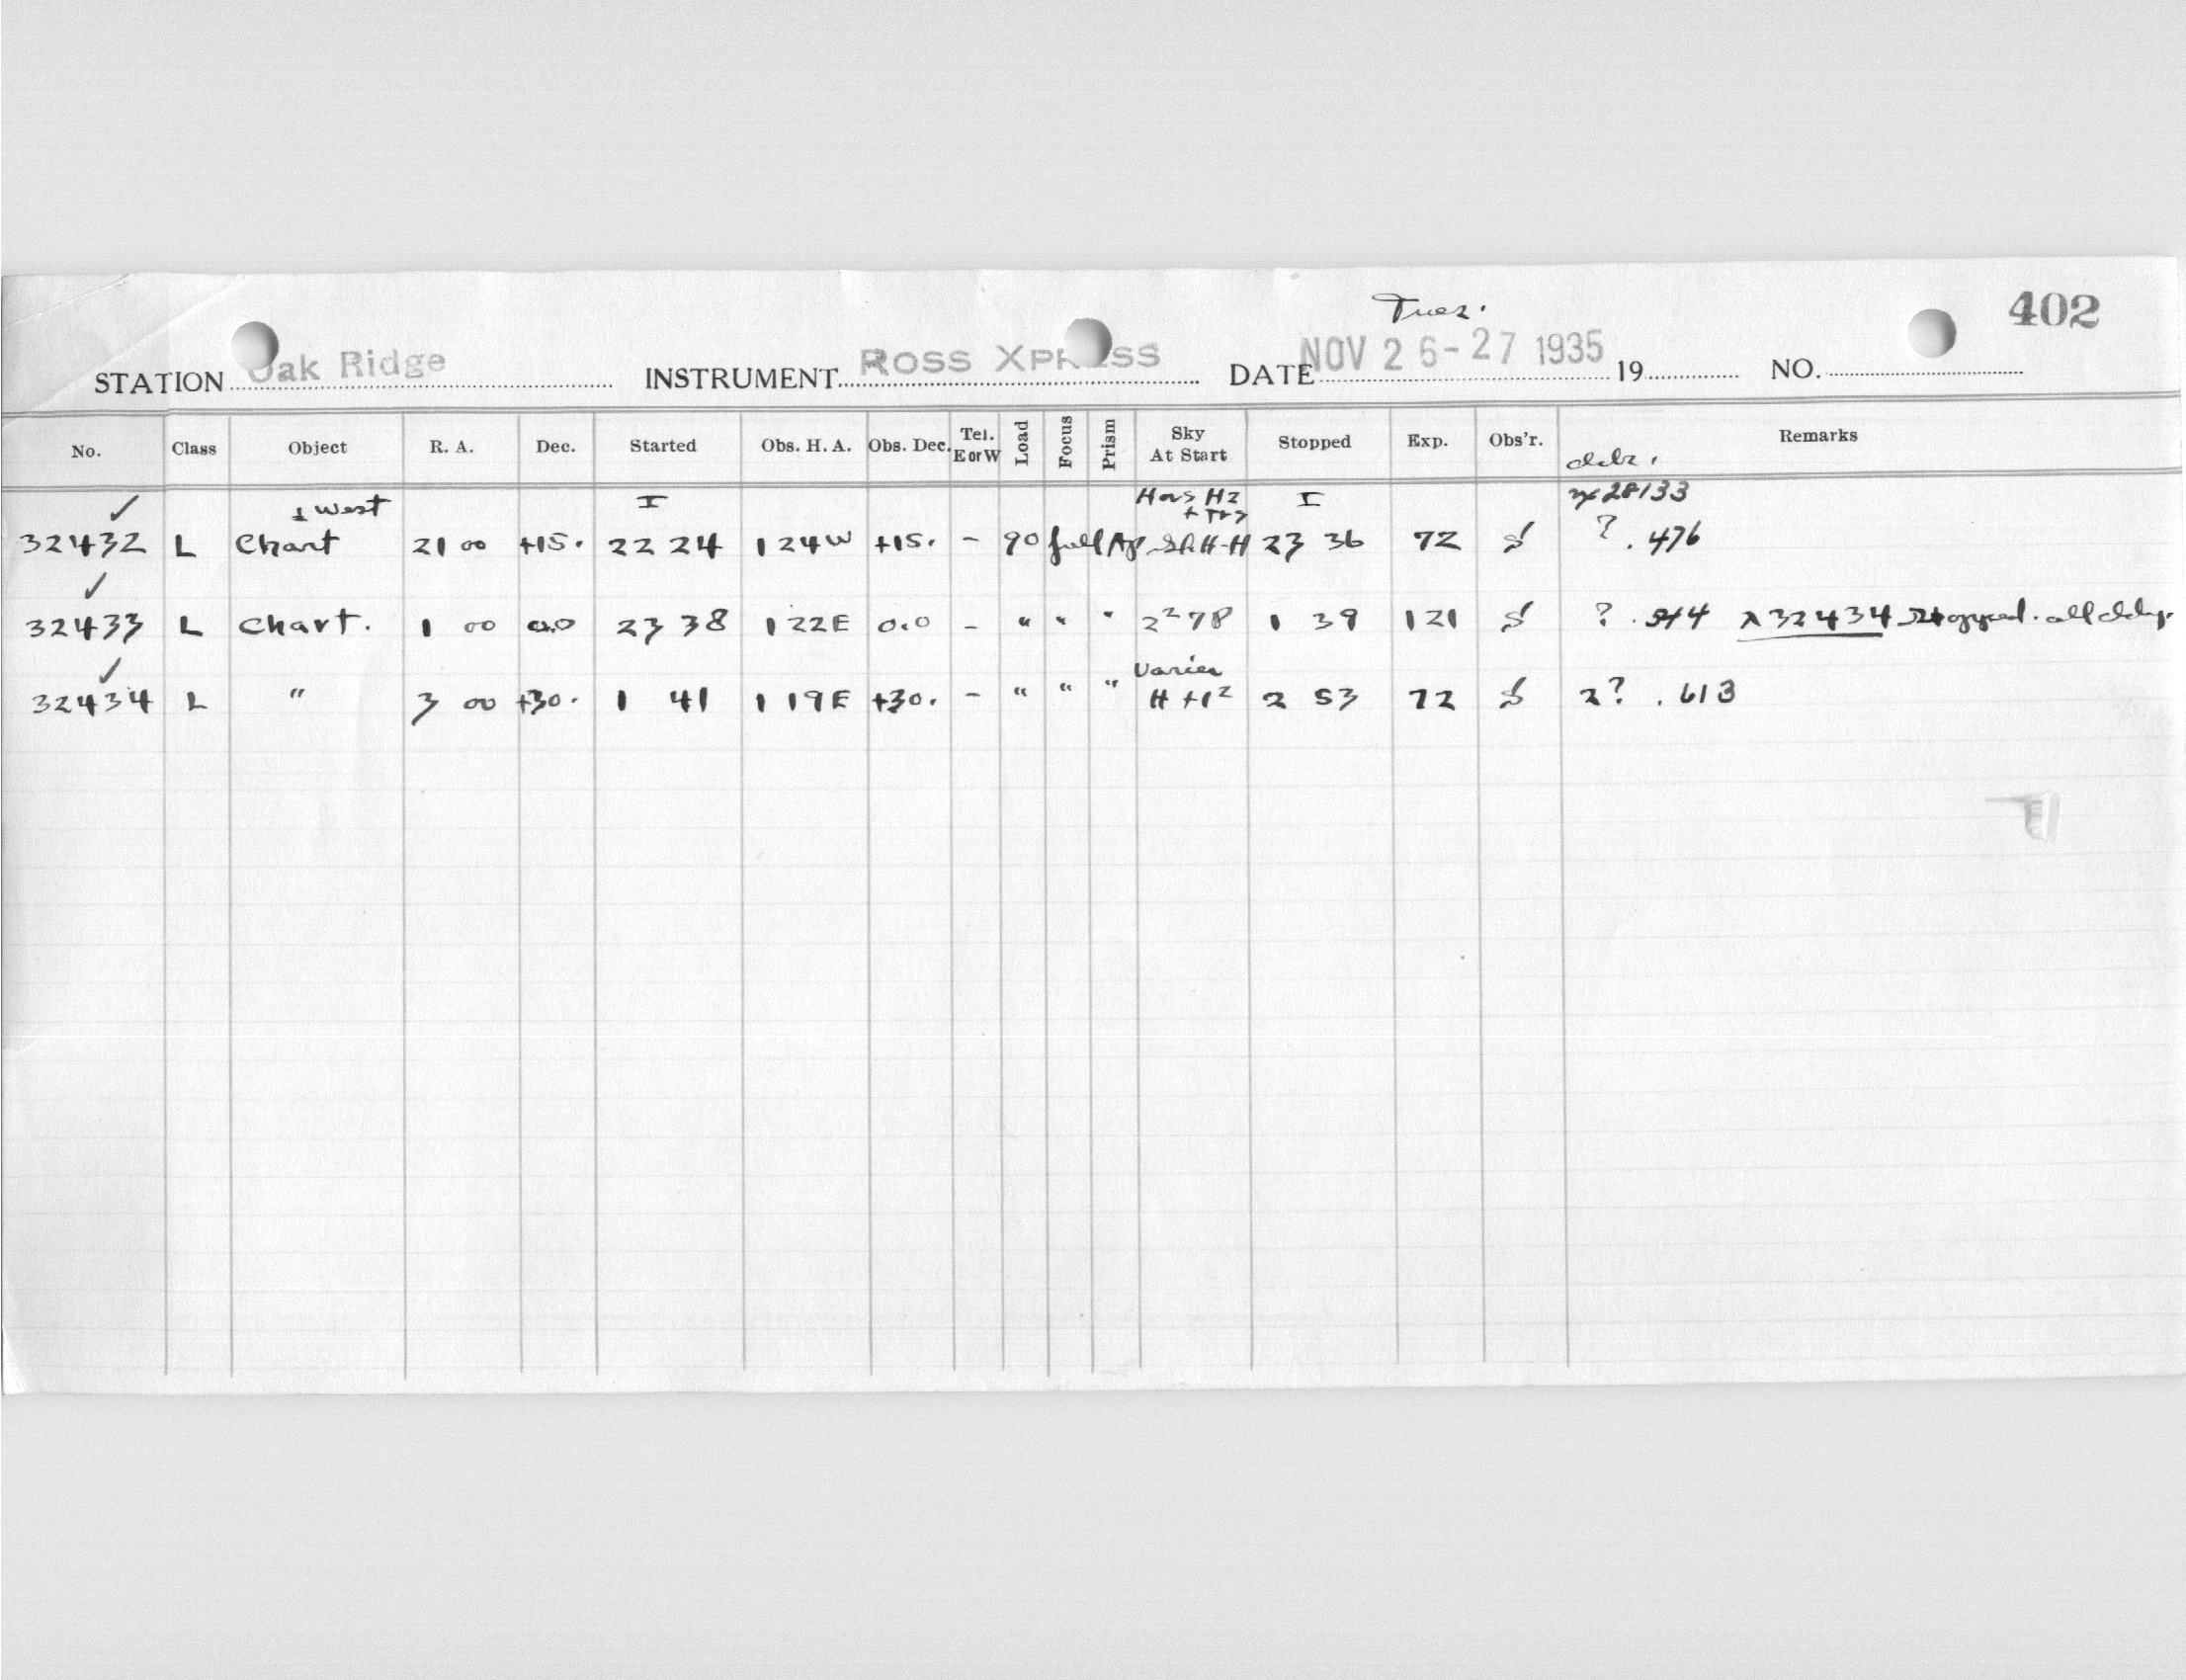 Tues.
402
STATION Oak Ridge INSTRUMENT ROSS XPRESS DATE NOV 26-27 1935 19 NO.
No. Class Object R. A. Dec. Started Obs. H. A. Obs. Dec. Tel. E or W Load Focus Prism Sky At Start Stopped Exp. Obs'r. Remarks
West I H2 I 28133
32432 L Chart 21 00 +15. 22 24 1 24W +15. - 90 full H-H 23 36 72 S ? .476
32433 L Chart. 1 00 0.0 23 38 1 22E 0.0 - " " " 2²78 1 39 121 S ? λ32434 Stopped. all
Varies
32434 L " 3 00 +30. 1 41 1 19E +30. - " " " H 2 53 72 S 2? .613